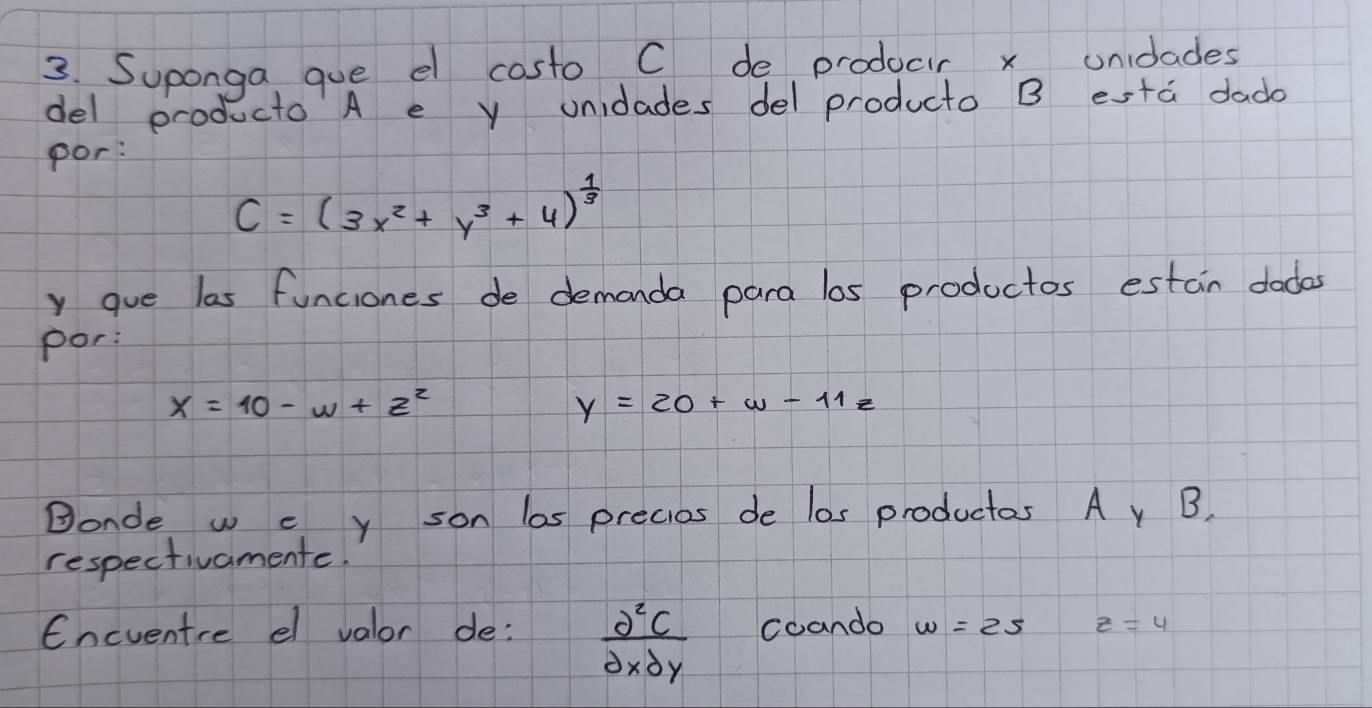 3. Suponga que el costo C de producir x unidades
del producto A e y unidades del producto B está dado
por:
C = (3x² + y³ + 4)^(1/3)
y que las funciones de demanda para los productos están dadas
por:
x = 10 - w + z² y = 20 + w - 11z
Donde w e y son los precios de los productos A y B,
respectivamente.
Encuentre el valor de: ∂²C/∂x∂y cuando w = 25 z = 4